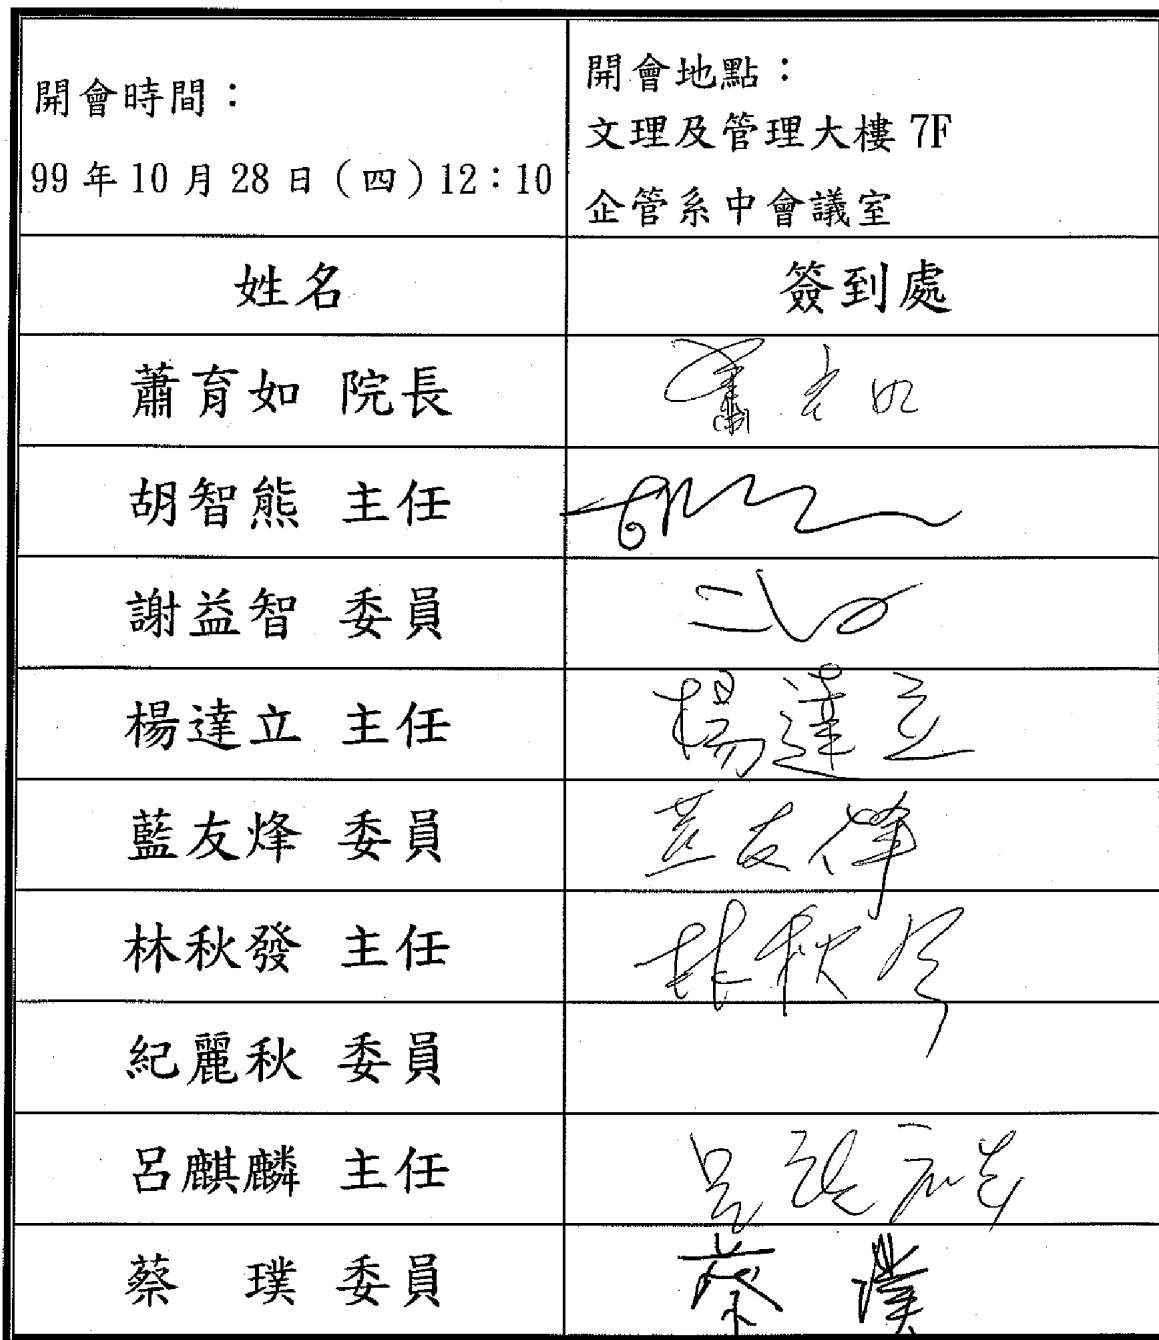 開會時間：
99年10月28日（四）12：10
開會地點：
文理及管理大樓 7F
企管系中會議室
姓名 簽到處
蕭育如 院長
胡智熊 主任
謝益智 委員
楊達立 主任 楊達立
藍友烽 委員
林秋發 主任 林秋
紀麗秋 委員
呂麒麟 主任 呂
蔡 璞 委員 蔡 璞